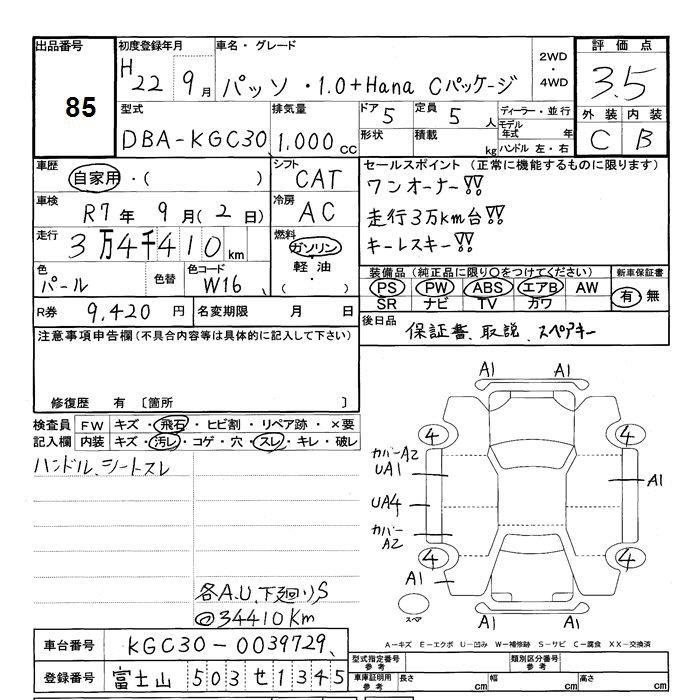 出品番号
85
初度登録年月
H22 9月
車名・グレード
パッソ・1.0+Hana Cパッケージ
2WD
・
4WD
評価点
3.5
型式
DBA-KGC30
排気量
1,000cc
ドア 5
定員 5人
形状
積載 kg
ディーラー・並行
モデル年式 年
ハンドル 左・右
外装 内装
C B
車歴
自家用・( )
シフト
CAT
車検
R7年 9月(2日)
冷房
AC
走行
3万4千410km
燃料
ガソリン
・
軽油
・
( )
色
パール
色替
色コード
W16
セールスポイント(正常に機能するものに限ります)
ワンオーナー!!
走行3万km台!!
キーレスキー!!
装備品(純正品に限り○をつけてください)
PS PW ABS エアB AW
SR ナビ TV カワ
新車保証書
有・無
R券 9,420円
名変期限 月 日
後日品
保証書、取説、スペアキー
注意事項申告欄(不具合内容等は具体的に記入して下さい)
修復歴 有 〔箇所 〕
検査員記入欄
FW キズ・飛石・ヒビ割・リペア跡・×要
内装 キズ・汚レ・コゲ・穴・スレ・キレ・破レ
ハンドル、シートスレ
各A.U,下廻りS
@34410Km
A1 A1
4 4
カバーA2
UA1
A1
UA4
カバーA2
4 4
A1
スペア
A1 A1
A−キズ E−エクボ U−凹み W−補修跡 S−サビ C−腐食 XX−交換済
車台番号 KGC30-0039729
登録番号 富士山 503 せ 1345
型式指定番号 参考
類別区分番号 参考
車庫証明用 参考
長さ cm 幅 cm 高さ cm